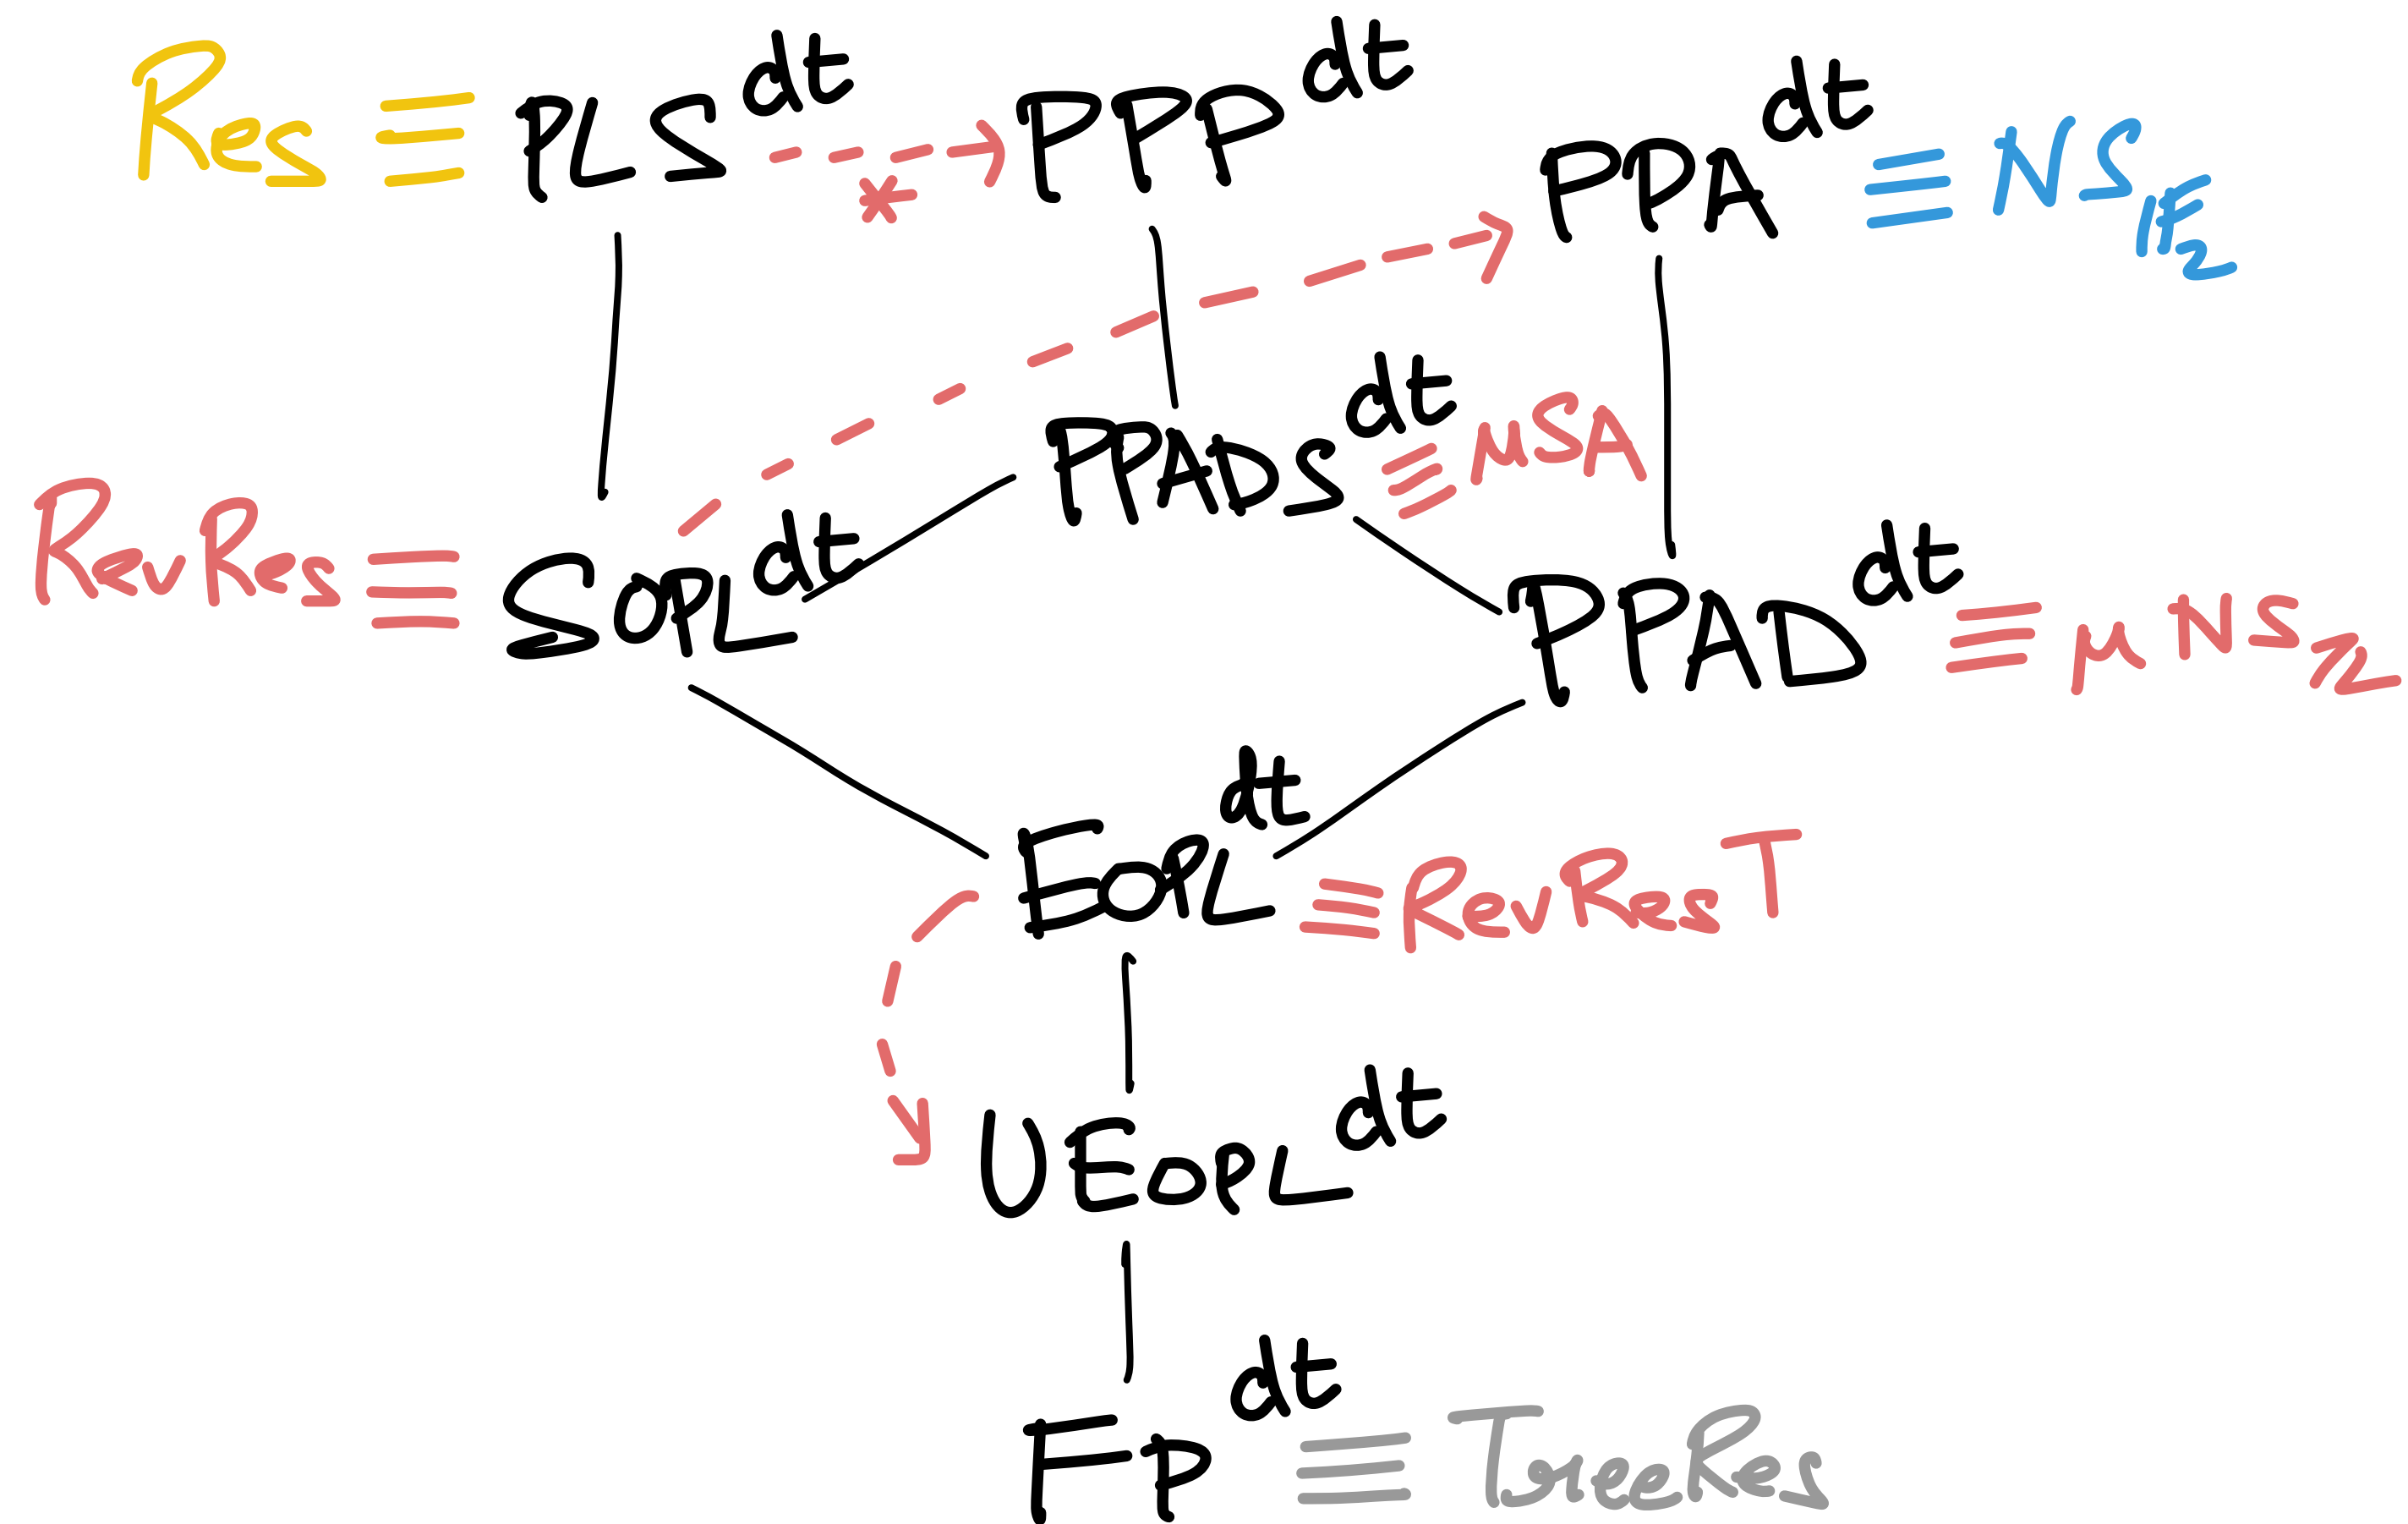 Res ≡ PLS^dt
*
PPP^dt
PPA^dt ≡ NS_F₂
PPADS^dt ≡ uSA
RevRes ≡ SOPL^dt
PPAD^dt ≡ uNS_Z
EOPL^dt ≡ RevResT
UEOPL^dt
FP^dt ≡ TreeRes